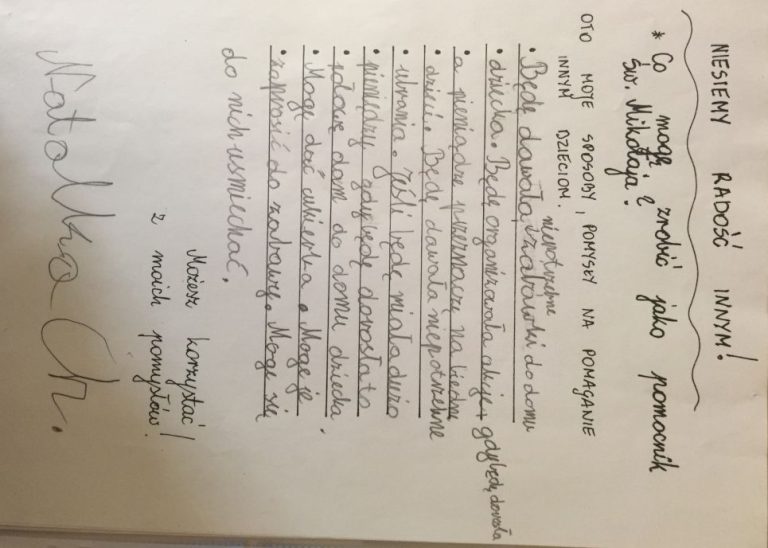 NIESIEMY RADOŚĆ INNYM!
* Co mogę zrobić jako pomocnik
Św. Mikołaja?
OTO MOJE SPOSOBY, POMYSŁY NA POMAGANIE
INNYM DZIECIOM.
niepotrzebne
• Będę dawała zabawki do domu
• dziecka. Będę organizowała akcje, gdy będę dorosła
• a pieniądze przeznaczę na biedne
• dzieci. Będę dawała niepotrzebne
• ubrania. Jeśli będę miała dużo
• pieniędzy gdy będę dorosła to
• dom do domu dziecka.
• Mogę dać cukierka. Mogę je
• zaprosić do zabawy. Mogę się
do nich usmiechać.
Możesz korzystać
z moich pomysłów!
Natalka Ch.